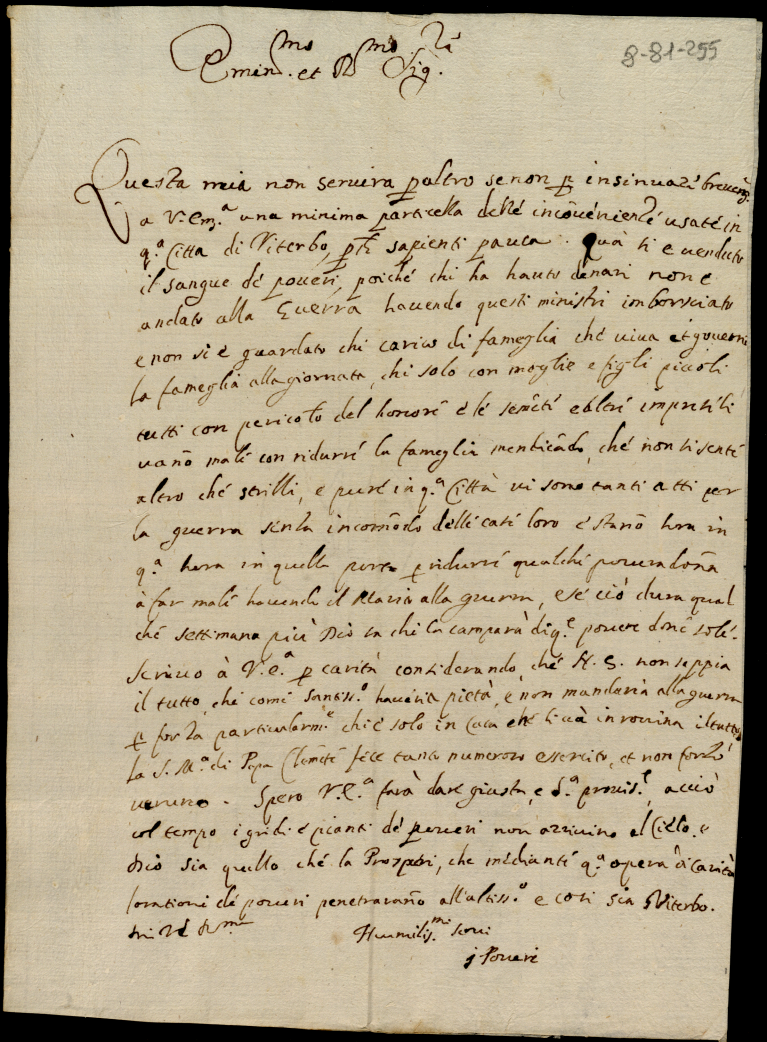 8-81-255
Emin.mo et R.mo Sig.
Questa mia non servira p altro se non p insinuare brevem.
a V. Em.a una minima particella delle inconvenienze usate in
q.a Citta di Viterbo, sapienti pauca. Quà si e venduto
il sangue de poveri, poiché chi ha hauto denari non e
andato alla Guerra havendo questi ministri imborsciato
e non si é guardato chi carico di fameglia ché viva et governi
la fameglia alla giornata, chi solo con moglie e figli piccoli
tutti con pericolo del honore é lé seméte é altri
vano malé con ridurré la fameglia mendicado, ché non si senté
altro ché strilli, e puré in q.a Città vi sono tanti atti per
la guerra senza incomodo delle casi loro é stano hora in
q.a hora in quella porta p ridurré qualché povera dona
à far malé havendo il Marito alla guerra, e sé ciò dura qual
ché settimana più Dio sa chi la camparà di q.e povere doné solé.
Scrivo à V.E.a p carità considerando, ché N. S. non seppia
il tutto, ché comé Santiss.o haveria pietà, e non mandaria alla guerra
p forza particularm.e chi é solo in casa ché si và in rovina il tutto
la S. M.a di Papa Cleméte féce tanto numeroso essercito, et non forzò
veruno. Spero V.E.a farà daré giusta, e S.a provis.e, acciò
col tempo i gridi é pianti dé poveri non arrivino al Cielo. é
Dio sia quello ché la Prosperi, che mediante q.a opera di Carità
lorationi dé poveri penetrarano all'altiss.o e così sia Viterbo.
Di V.E. R.ma
Humilis.mi servi
i Poveri